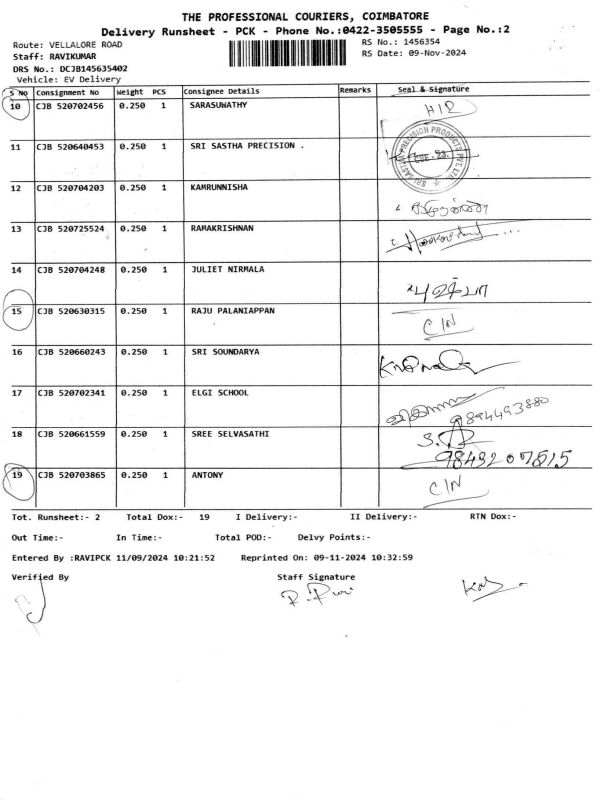 THE PROFESSIONAL COURIERS, COIMBATORE
Delivery Runsheet - PCK - Phone No.:0422-3505555 - Page No.:2
Route: VELLALORE ROAD RS No.: 1456354
Staff: RAVIKUMAR RS Date: 09-Nov-2024
DRS No.: DCJB145635402
Vehicle: EV Delivery
S No Consignment No Weight PCS Consignee Details Remarks Seal & Signature
10 CJB 520702456 0.250 1 SARASUWATHY
11 CJB 520640453 0.250 1 SRI SASTHA PRECISION .
12 CJB 520704203 0.250 1 KAMRUNNISHA
13 CJB 520725524 0.250 1 RAMAKRISHNAN
14 CJB 520704248 0.250 1 JULIET NIRMALA
15 CJB 520630315 0.250 1 RAJU PALANIAPPAN C/N
16 CJB 520660243 0.250 1 SRI SOUNDARYA
17 CJB 520702341 0.250 1 ELGI SCHOOL 9894493880
18 CJB 520661559 0.250 1 SREE SELVASATHI
19 CJB 520703865 0.250 1 ANTONY C/N
Tot. Runsheet:- 2 Total Dox:- 19 I Delivery:- II Delivery:- RTN Dox:-
Out Time:- In Time:- Total POD:- Delvy Points:-
Entered By :RAVIPCK 11/09/2024 10:21:52 Reprinted On: 09-11-2024 10:32:59
Verified By Staff Signature